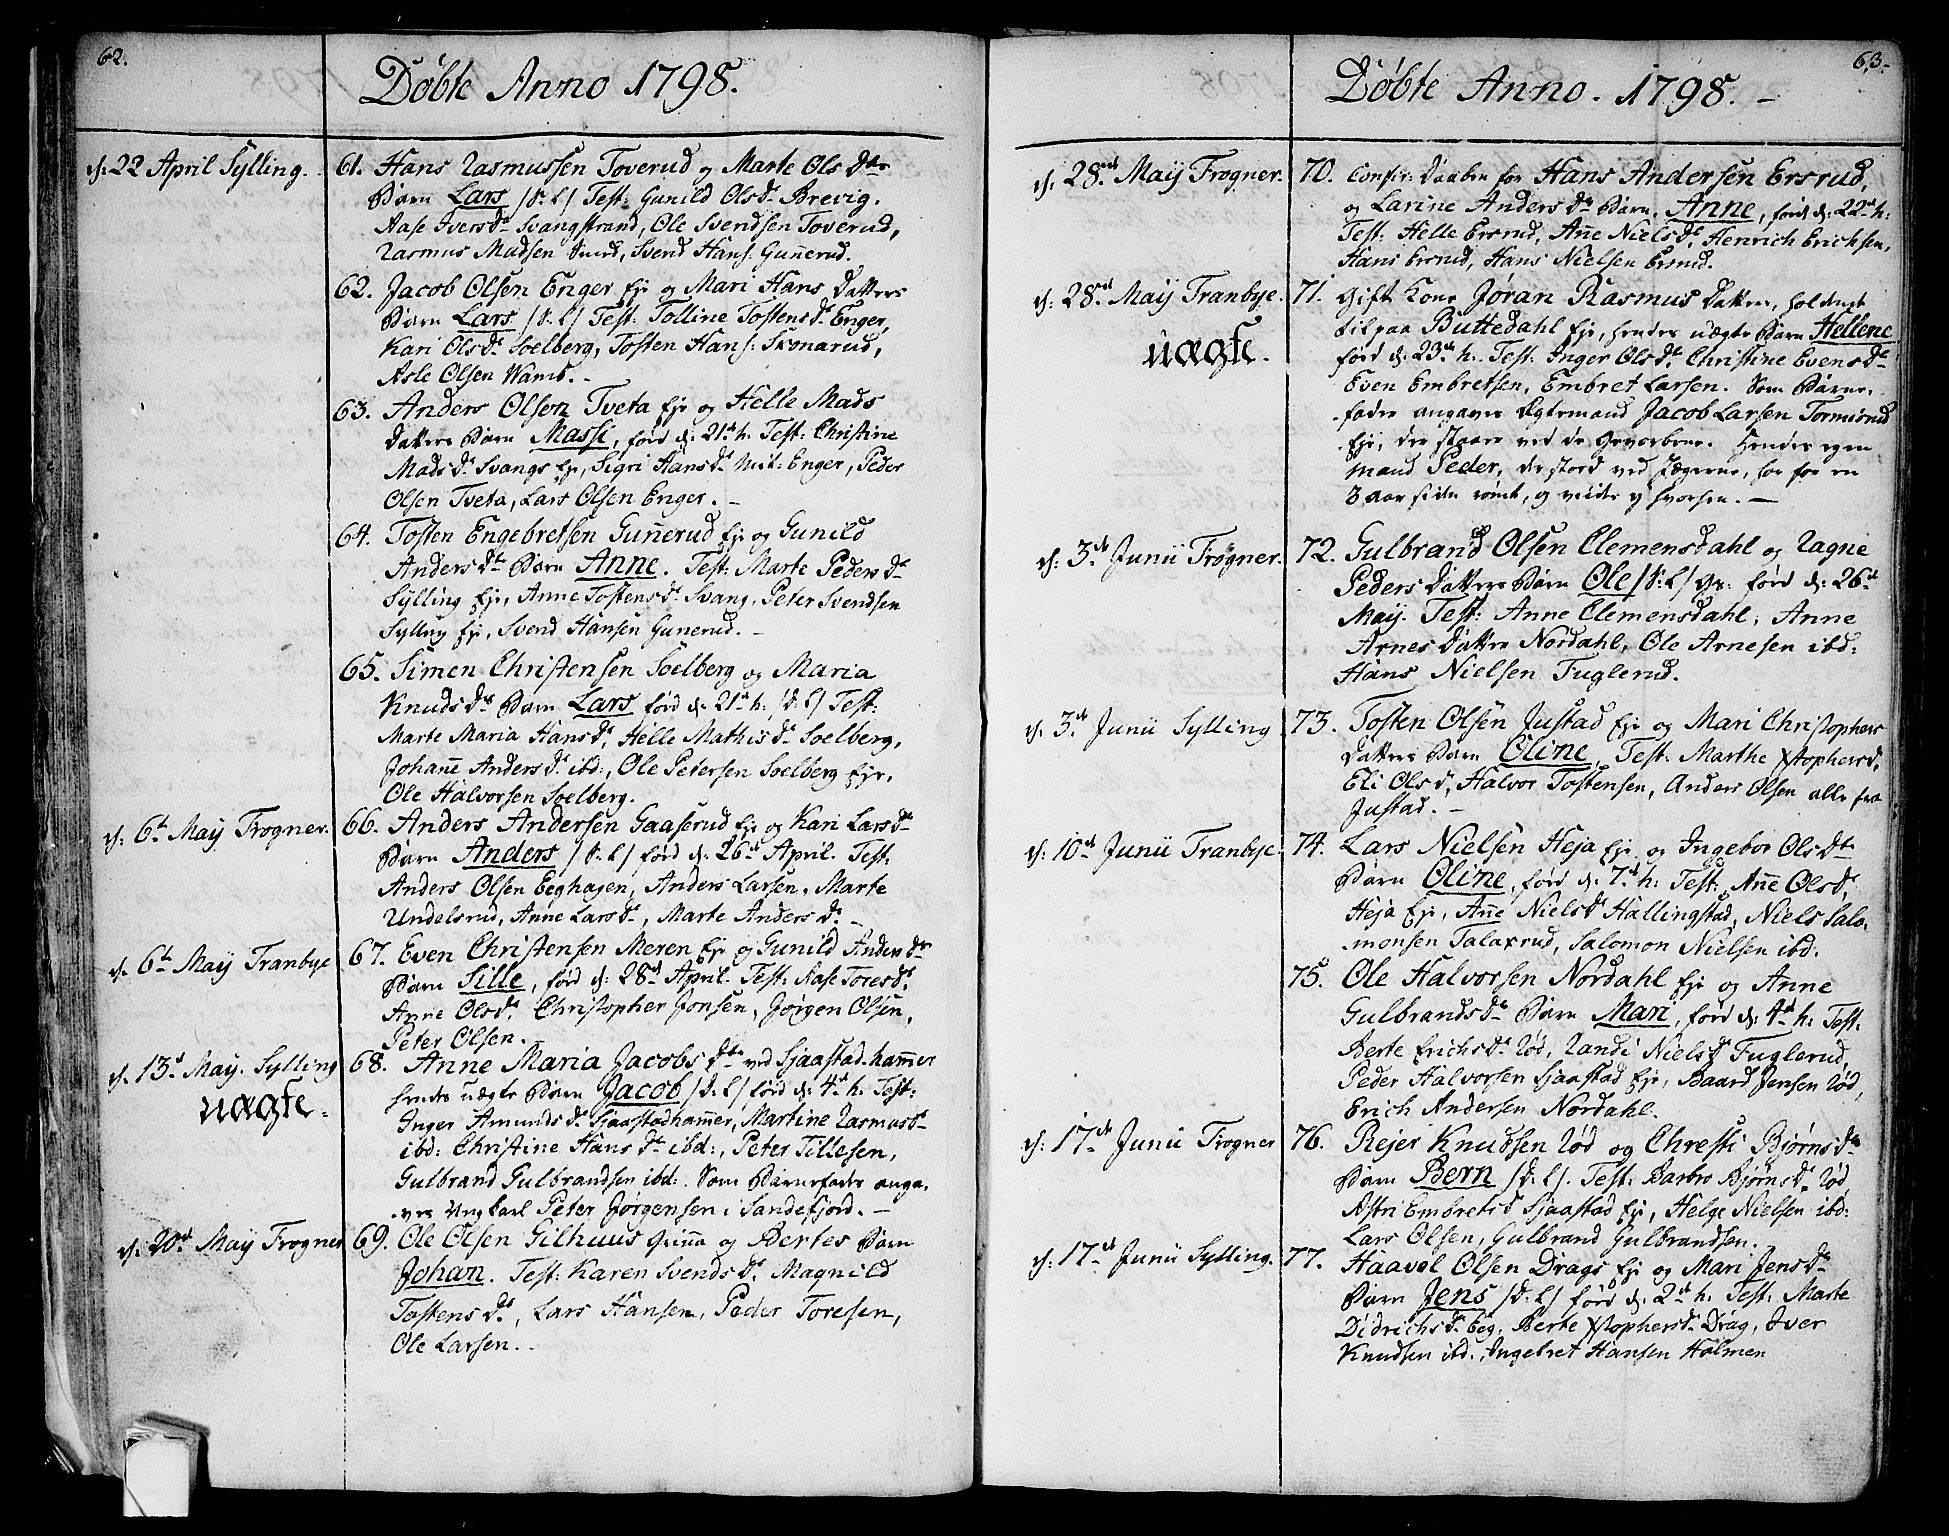 62.
Döbte Anno 1798.
d: 22 April Sylling.
61. Hans Rasmussen Toverud og Marte Ols Dtr
Barn Lars /S:L/ Test: Gunild Olsd. Brevig.
Aase Iversd. Svangstrand, Ole Svendsen Toverud,
Rasmus Madsen, Svend Hans: Guñerud.
62. Jacob Olsen Enger Eje og Mari Hans Datters
Barn Lars /S:L/ Test: Tolline Tostensd. Enger,
Kari Olsd. Soelberg, Tosten Hans:
Asle Olsen Wamb. -
63. Anders Olsen Tveta Eje og Helle Mads
Datters Barn Massi, föd d: 21de h. Test: Christine
Madsd. Svangs Eje, Sigri Hansd. Mit: Enger, Peder
Olsen Tveta, Lars Olsen Enger. -
64. Tosten Engebretsen Guñerud Eje og Gunild
Andersd. Barn Anne. Test: Marte Pedersd.
Sylling Eje, Anne Tostensd. Svang, Peter Svendsen
Sylling Eje, Svend Hansen Gunerud. -
65. Simen Christensen Soelberg og Maria
Knudsd. Barn Lars föd d: 21de h: /S:L/ Test:
Marte Maria Hansd. Helle Mathisd. Soelberg,
Johañ Andersd. ibd:, Ole Petersen Soelberg Eje,
Ole Halvorsen Soelberg.
d: 6te May Frogner.
66. Anders Andersen Gaaserud Eje og Kari Larsd.
Barn Anders /S:L/ föd d: 26de April. Test:
Anders Olsen Eeghagen, Anders Larsen, Marte
Undelsrud, Anne Larsd., Marte Andersd. -
d: 6te May Tranbye
67. Even Christensen Meren Eje og Gunild Andersd.
Barn Sille, föd d: 28de April. Test: Aase Toresd.
Anne Olsd. Christopher Jonsen, Jörgen Olsen,
Peter Olsen.
d. 13de May. Sylling
uægte.
68. Anne Maria Jacobsd. ved Sjaastad-hamer
hendes uægte Barn Jacob /S:L/ föd d: 4de h. Test:
Inger Amundsd. Sjaastadhamer, Martine Rasmusd.
ibd: Christine Hansd. ibd:, Peter Tillesen,
Gulbrand Gulbrandsen ibd: Som Barnefader anga-
ves Ungkarl Peter Jörgensen i Sandefjord. -
d: 20de May Frogner
69. Ole Olsen Gilhuus og Bertes Barn
Johan. Test: Karen Svendsd. Magnild
Tostensd., Lars Hansen, Peder Toresen,
Ole Larsen. -
63.
Döbte Anno. 1798. -
d: 28de May Frogner.
70. Confir: Daaben for Hans Andersen Ersrud,
og Larine Andersd. Barn, Anne, föd d: 22de h:
Test: Helle Ersrud, Añe Nielsd. Henrich Erichsen,
Hans Ersrud, Hans Nielsen Ersrud.
d: 28de May Tranbye.
uægte.
71. Gift Kone Jöran Rasmus Datter, holdende
til paa Buttedahl Eje, hendes uægte Barn Hellene
föd d: 23de h. Test: Inger Olsd. Christine Evensd.
Even Embretsen, Embret Larsen. Som Barne-
fader angaves Ægtemand Jacob Larsen Tormisrud
Eje, der staaer ved de Gevorbene. Hendes egen
Mand Peder, der stod ved Jægerne, har for en
3 aar siden römt, og veides ej hvorhen. -
d: 3de Junii Frogner.
72. Gulbrand Olsen Clemensdahl og Ragne
Peders Datters Barn Ole /S:L/ föd d: 26de
May. Test: Anne Clemensdahl, Anne
Arnes Datter Nordahl, Ole Arnesen ibd:
Hans Nielsen Fuglerud.
d. 3de Junii Sylling
73. Tosten Olsen Justad Eje og Mari Christophers
Datters Barn Oline, Test: Marthe Xstophersd,
Eli Olsd, Halvor Tostensen, Anders Olsen alle fra
Justad. -
d: 10de Junii Tranbye.
74. Lars Nielsen Heja Eje og Ingebor Olsd.
Barn Oline, föd d. 7de h. Test: Añe Olsd.
Heja Eje, Añe Nielsd Hallingstad, Niels Salo-
monsen Talaxrud, Salomon Nielsen ibd:
75. Ole Halvorsen Nordahl Eje og Anne
Gulbrandsd. Barn Mari, föd d. 4de h. Test:
Berte Erichsd. Röd, Randi Nielsd Fuglerud,
Peder Halvorsen Sjaastad Eje, Baard Jensen Röd,
Erich Andersen Nordahl.
d: 17de Junii Frogner
76. Rejer Knudsen Röd og Chresti Björnsd.
Barn Bern /S:L/. Test: Barbro Björnsd. Röd
Astri Embretsd Sjaastad Eje, Helge Nielsen ibd:
Lars Olsen, Gulbrand Gulbrandsen.
d: 17de Junii Sylling.
77. Haavel Olsen Drags Eje og Mari Jensd.
Barn Jens /S:L/ föd d. 2de h. Test: Marte
Didrichsd. Eeg, Berte Xstophersd. Drag, Iver
Knudsen ibd., Engebret Hansen Holmen